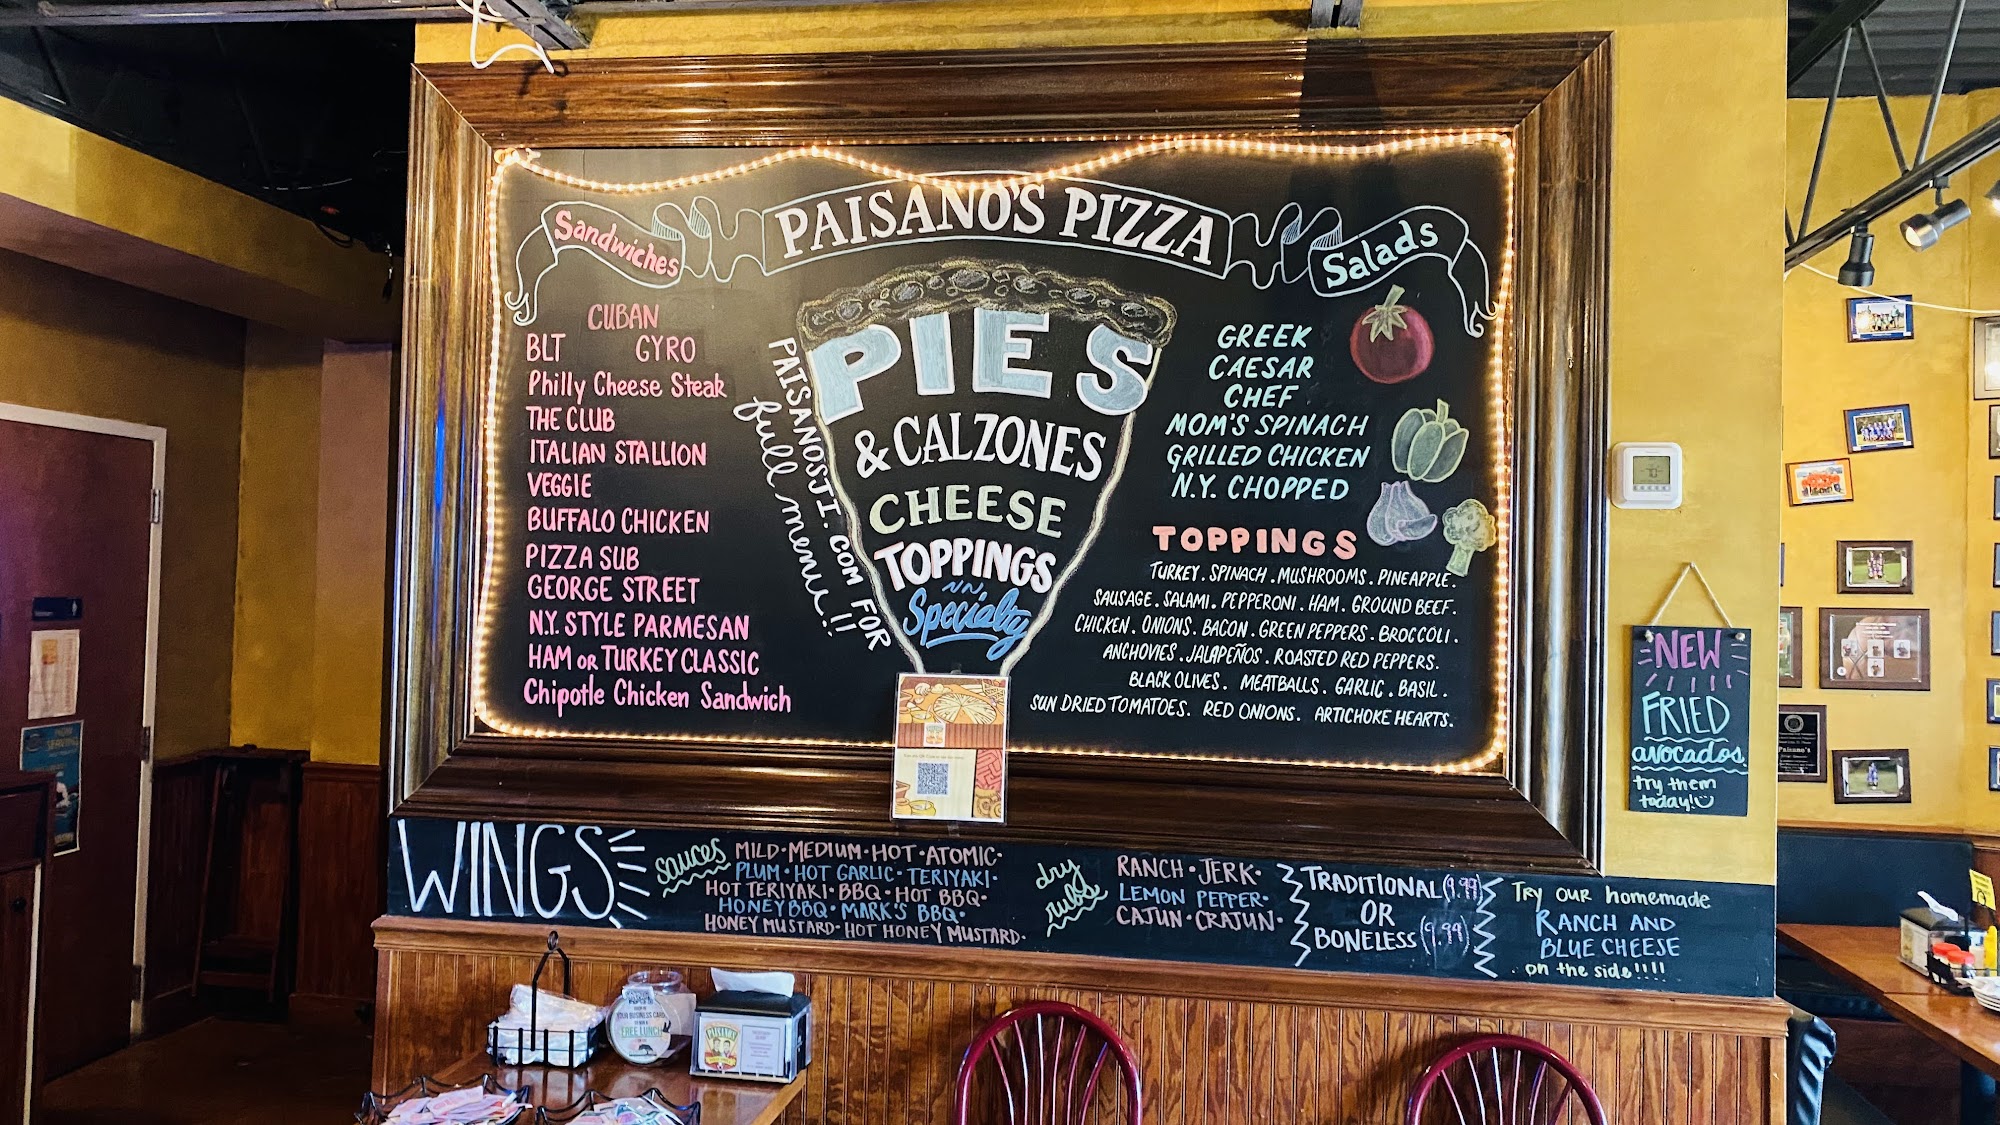 PAISANO'S PIZZA
Sandwiches
CUBAN
BLT GYRO
Philly Cheese Steak
THE CLUB
ITALIAN STALLION
VEGGIE
BUFFALO CHICKEN
PIZZA SUB
GEORGE STREET
N.Y. STYLE PARMESAN
HAM OR TURKEY CLASSIC
Chipotle Chicken Sandwich
PAISANOSJI.COM FOR
full menu!!
PIES
& CALZONES
CHEESE
TOPPINGS
Specialty
Salads
GREEK
CAESAR
CHEF
MOM'S SPINACH
GRILLED CHICKEN
N.Y. CHOPPED
TOPPINGS
TURKEY. SPINACH. MUSHROOMS. PINEAPPLE.
SAUSAGE. SALAMI. PEPPERONI. HAM. GROUND BEEF.
CHICKEN. ONIONS. BACON. GREEN PEPPERS. BROCCOLI.
ANCHOVIES. JALAPEÑOS. ROASTED RED PEPPERS.
BLACK OLIVES. MEATBALLS. GARLIC. BASIL.
SUN DRIED TOMATOES. RED ONIONS. ARTICHOKE HEARTS.
NEW
FRIED
avocados
try them
today!
WINGS
sauces
MILD·MEDIUM·HOT·ATOMIC·
PLUM·HOT GARLIC·TERIYAKI·
HOT TERIYAKI·BBQ·HOT BBQ·
HONEY BBQ·MARK'S BBQ·
HONEY MUSTARD·HOT HONEY MUSTARD.
dry
rubs
RANCH·JERK·
LEMON PEPPER·
CAJUN·CRAJUN·
TRADITIONAL (9.99)
OR
BONELESS (9.99)
TRY OUR homemade
RANCH AND
BLUE CHEESE
on the side!!!!
YOUR BUSINESS CARD
FREE LUNCH
Paisano's